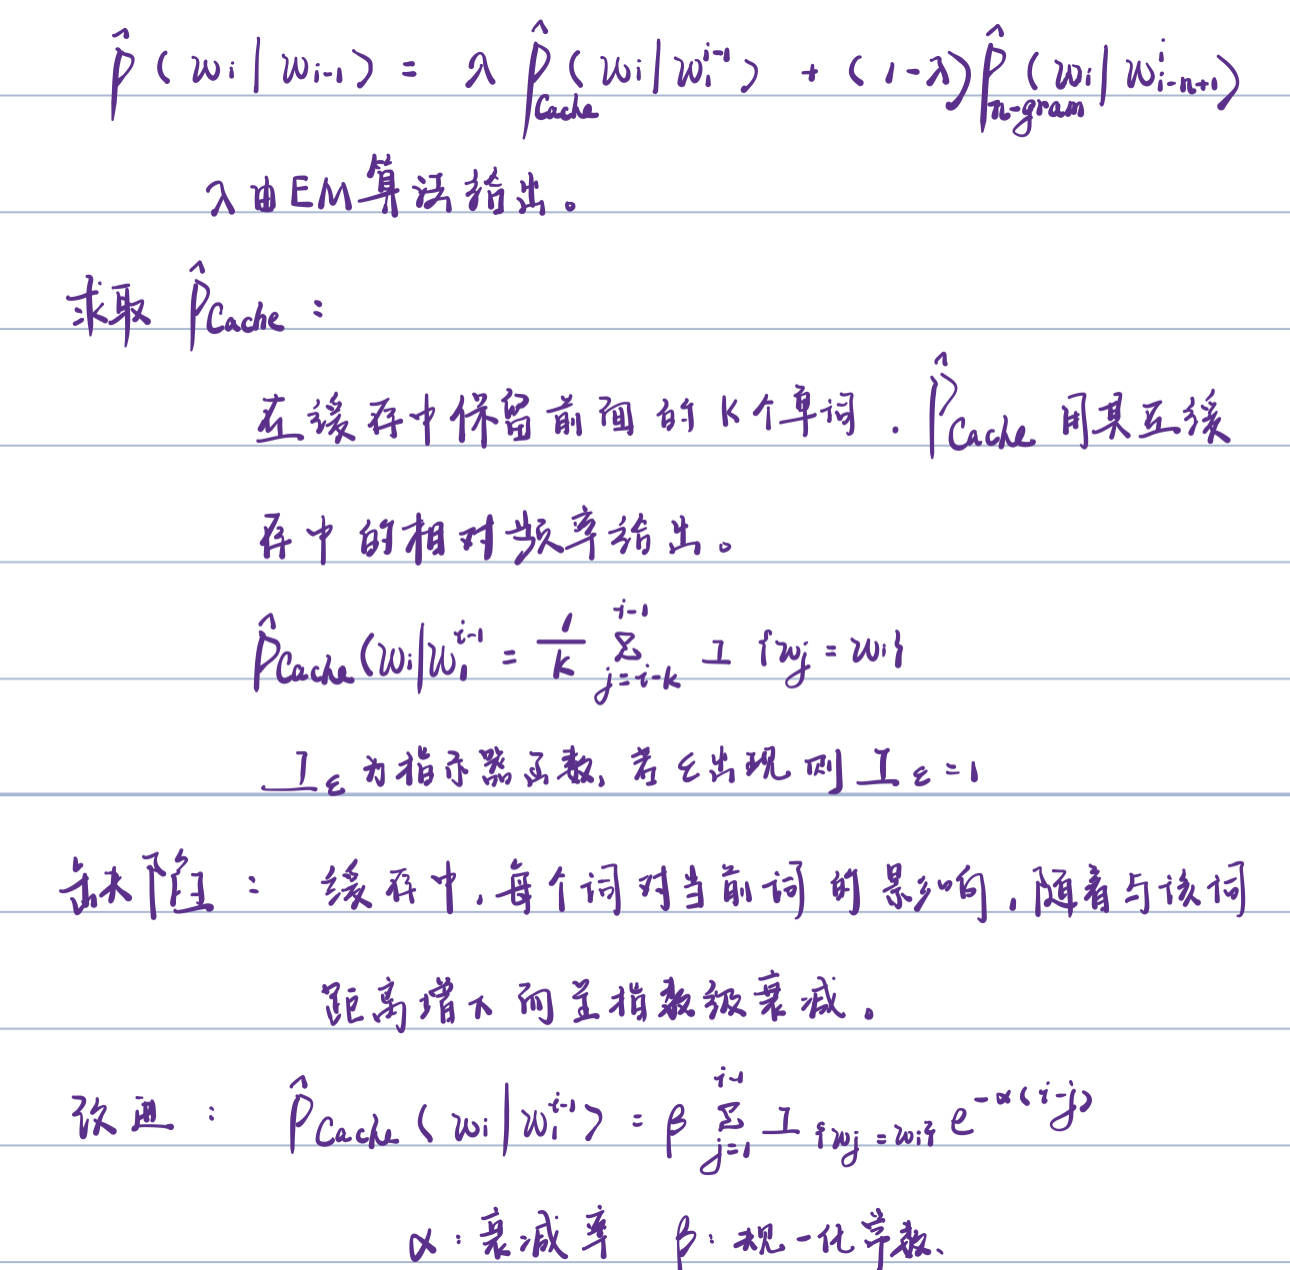 P̂(wi|wi-1) = λ P̂Cache(wi|w₁^{i-1}) + (1-λ)P̂n-gram(wi|w^{i}_{i-n+1})
λ由EM算法给出。
求取 P̂Cache：
在缓存中保留前面的K个单词. P̂Cache 用其在缓
存中的相对频率给出。
P̂Cache(wi|w₁^{i-1} = 1/K Σ_{j=i-k}^{i-1} I {wj = wi}
I_ε 为指示器函数, 若 ε 出现 则 I_ε = 1
缺陷： 缓存中, 每个词对当前词的影响, 随着与该词
距离增大而呈指数级衰减。
改进： P̂Cache(wi|w₁^{i-1}) = β Σ_{j=1}^{i-1} I_{{wj = wi}} e^{-α(i-j)}
α: 衰减率 β: 规一化常数、